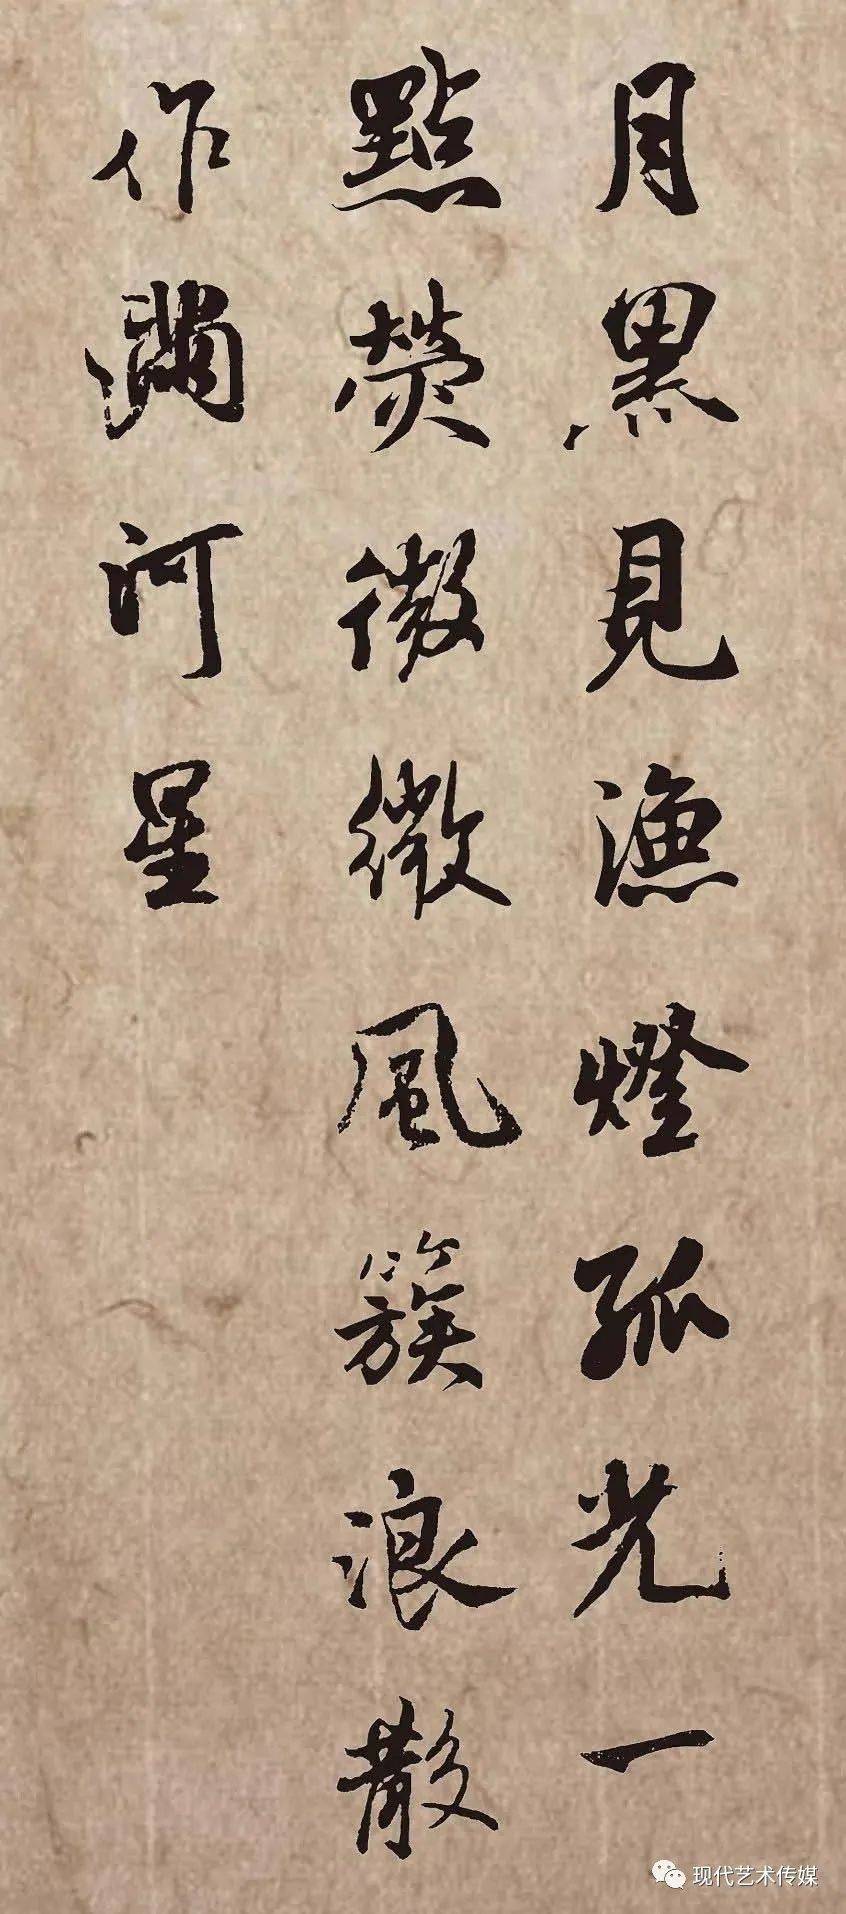 月黑見漁燈孤光一
點熒微微風簇浪散
作滿河星
现代艺术传媒